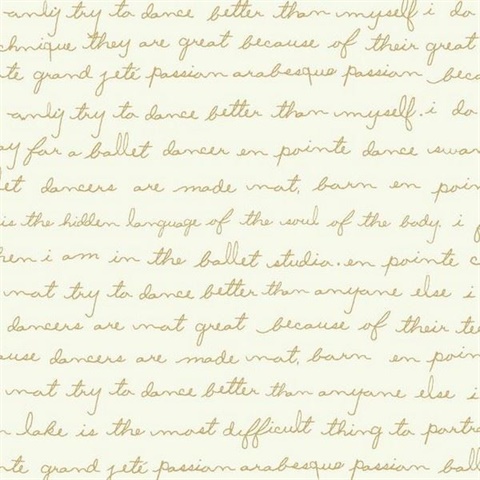 anly try to dance better than myself i do
chnique they are great because of their great
te grand jeté passion arabesque passion beca
anly try to dance better than myself. i do
ay for a ballet dancer en pointe dance swan
let dancers are made not, born en poin
is the hidden language of the soul of the body. i f
hen i am in the ballet studio. en pointe c
not try to dance better than anyone else i
dancers are not great because of their te
ause dancers are made not, born en poin
not try to dance better than anyone else i
n lake is the most difficult thing to portra
nte grand jeté passion arabesque passion ball